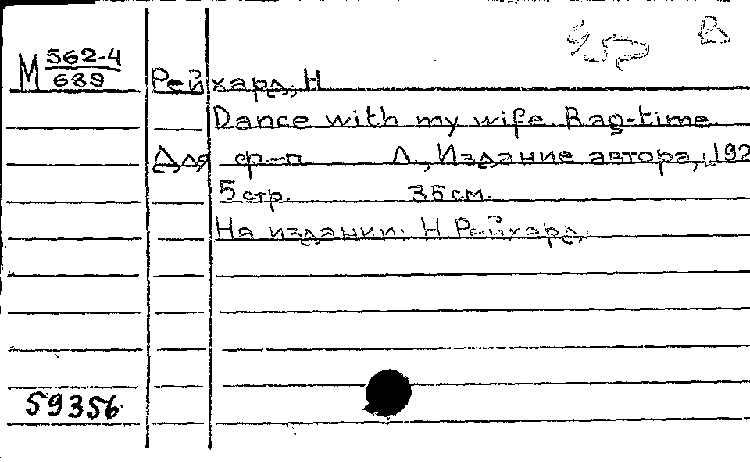 В
М 562-4
689
Рейхард, Н
Dance with my wife. Rag-time.
Для ф-п Л., Издание автора, 192
5 стр. 35 см.
На издании: Н Рейхард
59356